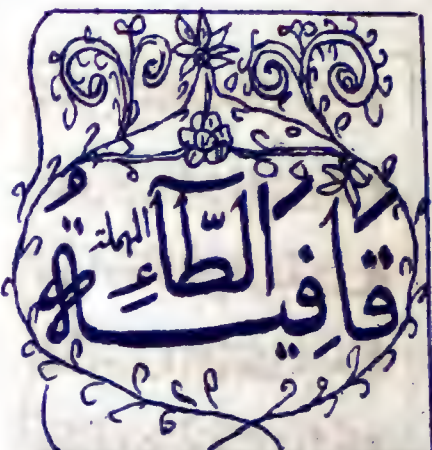 قَافِيَةُ الطَّاءِ المهملة